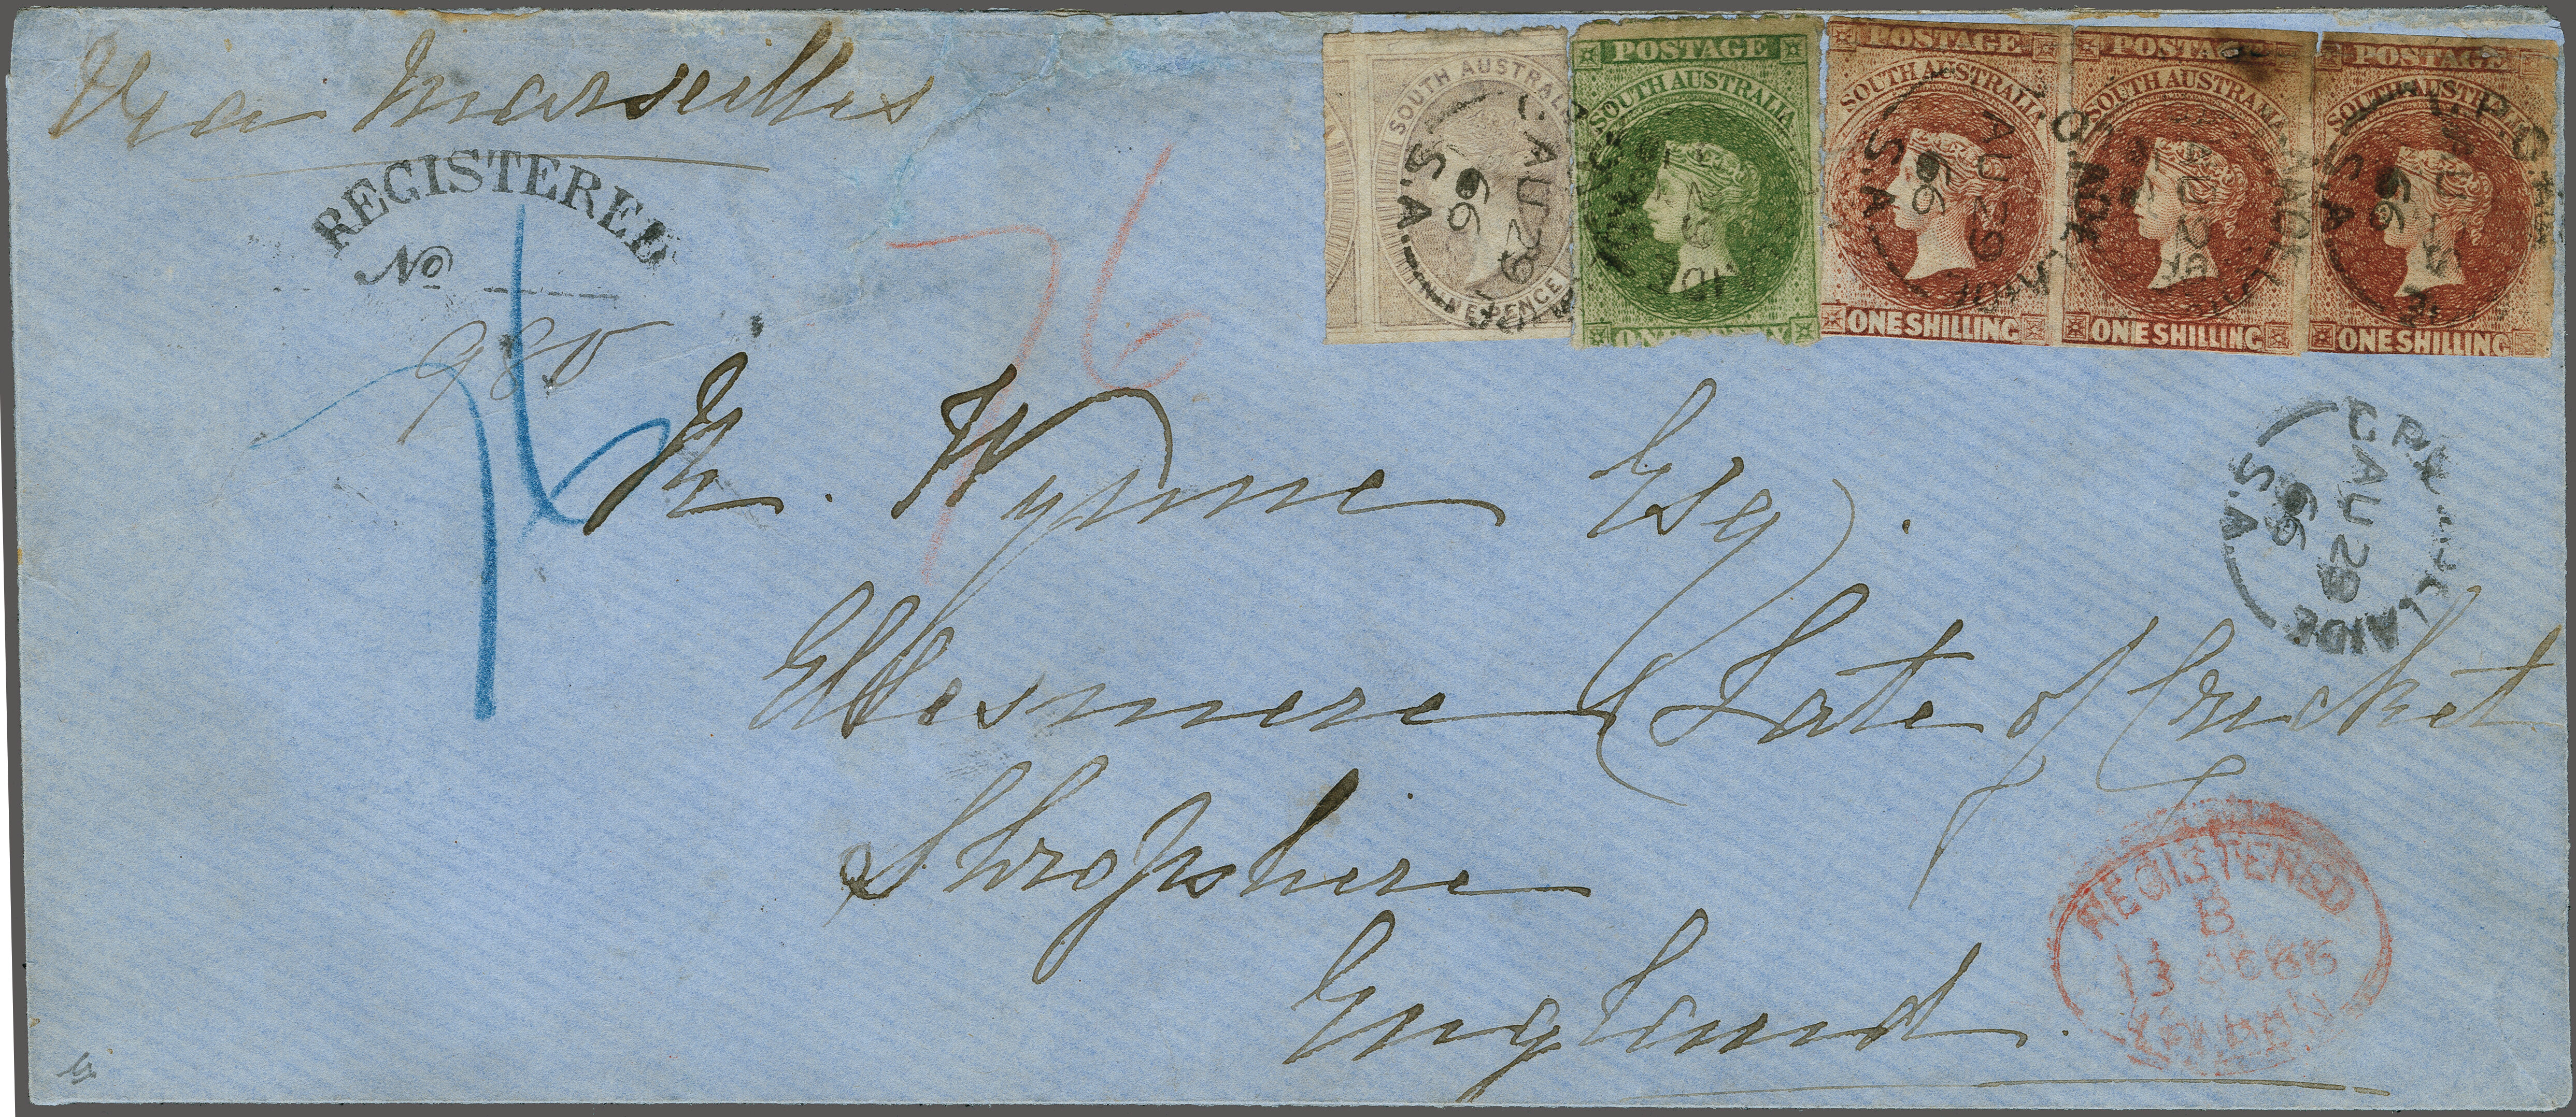 Via Marseilles
REGISTERED
No
980
76
76
SOUTH AUSTRALIA
NINEPENCE
POSTAGE
SOUTH AUSTRALIA
ONE PENNY
POSTAGE
SOUTH AUSTRALIA
ONE SHILLING
POSTAGE
SOUTH AUSTRALIA
ONE SHILLING
POSTAGE
SOUTH AUSTRALIA
ONE SHILLING
G.P.O. ADELAIDE
AU 29
66
S.A.
W. Wynne Esq.
Ellesmere (Late of Cricket
Shropshire
England.
REGISTERED
B
13 OC 66
LONDON